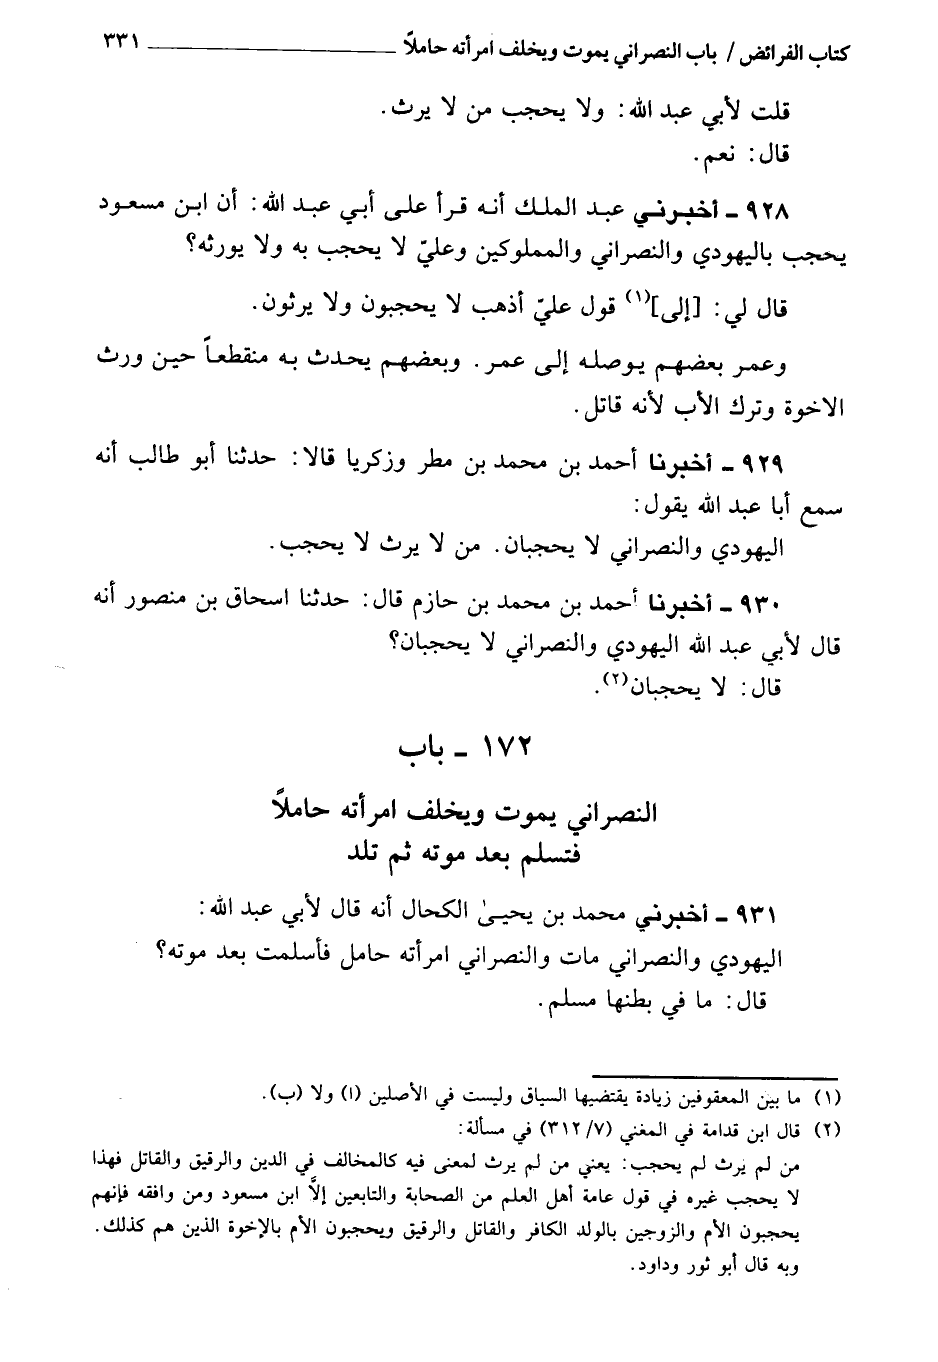 كتاب الفرائض / باب النصراني يموت ويخلف امرأته حاملاً ٣٣١
قلت لأبي عبد الله: ولا يحجب من لا يرث.
قال: نعم.
٩٢٨ ـ أخبرني عبد الملك أنه قرأ على أبي عبد الله: أن ابن مسعود
يحجب باليهودي والنصراني والمملوكين وعليّ لا يحجب به ولا يورثه؟
قال لي: [إلى](١) قول عليّ أذهب لا يحجبون ولا يرثون.
وعمر بعضهم يوصله إلى عمر. وبعضهم يحدث به منقطعاً حين ورث
الاخوة وترك الأب لأنه قاتل.
٩٢٩ ـ أخبرنا أحمد بن محمد بن مطر وزكريا قالا: حدثنا أبو طالب أنه
سمع أبا عبد الله يقول:
اليهودي والنصراني لا يحجبان. من لا يرث لا يحجب.
٩٣٠ ـ أخبرنا أحمد بن محمد بن حازم قال: حدثنا اسحاق بن منصور أنه
قال لأبي عبد الله اليهودي والنصراني لا يحجبان؟
قال: لا يحجبان(٢).
١٧٢ ـ باب
النصراني يموت ويخلف امرأته حاملاً
فتسلم بعد موته ثم تلد
٩٣١ ـ أخبرني محمد بن يحيىٰ الكحال أنه قال لأبي عبد الله:
اليهودي والنصراني مات والنصراني امرأته حامل فأسلمت بعد موته؟
قال: ما في بطنها مسلم.
(١) ما بين المعقوفين زيادة يقتضيها السياق وليست في الأصلين (ا) ولا (ب).
(٢) قال ابن قدامة في المغني (٣١٢/٧) في مسألة:
من لم يرث لم يحجب: يعني من لم يرث لمعنى فيه كالمخالف في الدين والرقيق والقاتل فهذا
لا يحجب غيره في قول عامة أهل العلم من الصحابة والتابعين إلاَّ ابن مسعود ومن وافقه فإنهم
يحجبون الأم والزوجين بالولد الكافر والقاتل والرقيق ويحجبون الأم بالإخوة الذين هم كذلك.
وبه قال أبو ثور وداود.